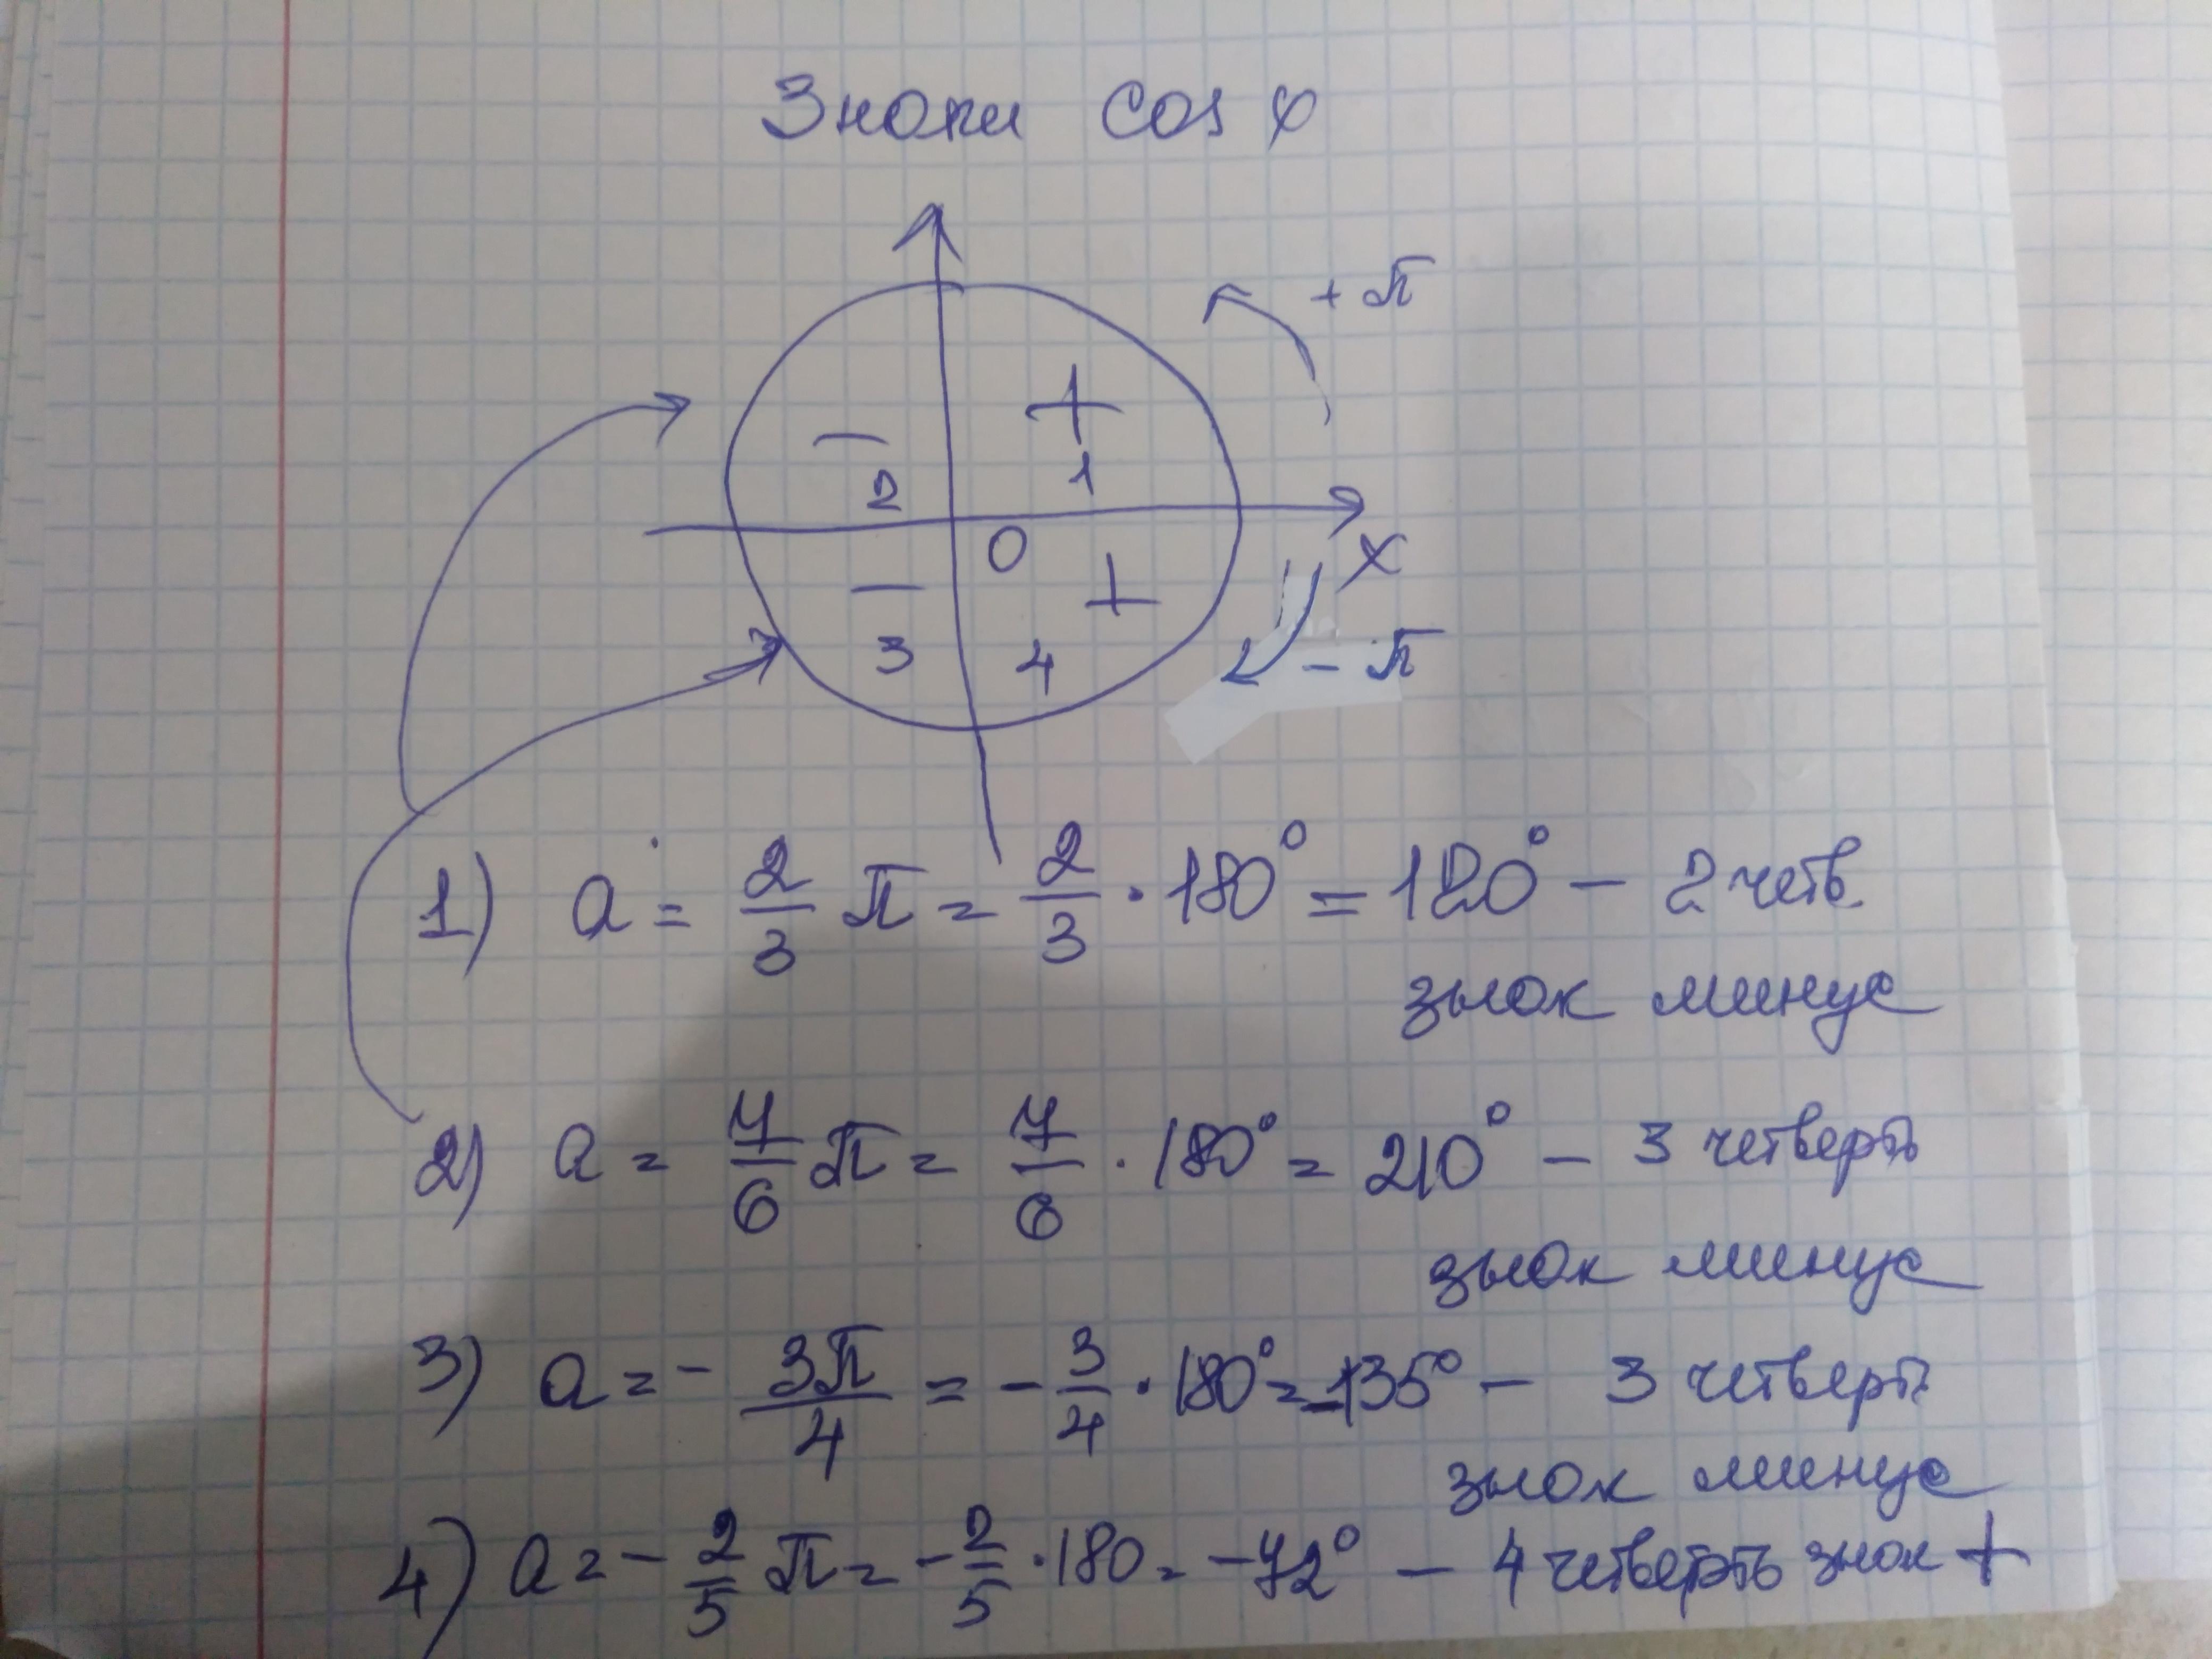 Знаки cos φ
+ π
− +
2 1
0
x
− +
3 4
− π
1) a = 2/3 π = 2/3 · 180° = 120° – 2 четв.
знак минус
2) a = 7/6 π = 7/6 · 180° = 210° – 3 четверть
знак минус
3) a = - 3π/4 = - 3/4 · 180° = -135° – 3 четверть
знак минус
4) a = - 2/5 π = - 2/5 · 180 = -72° – 4 четверть знак +